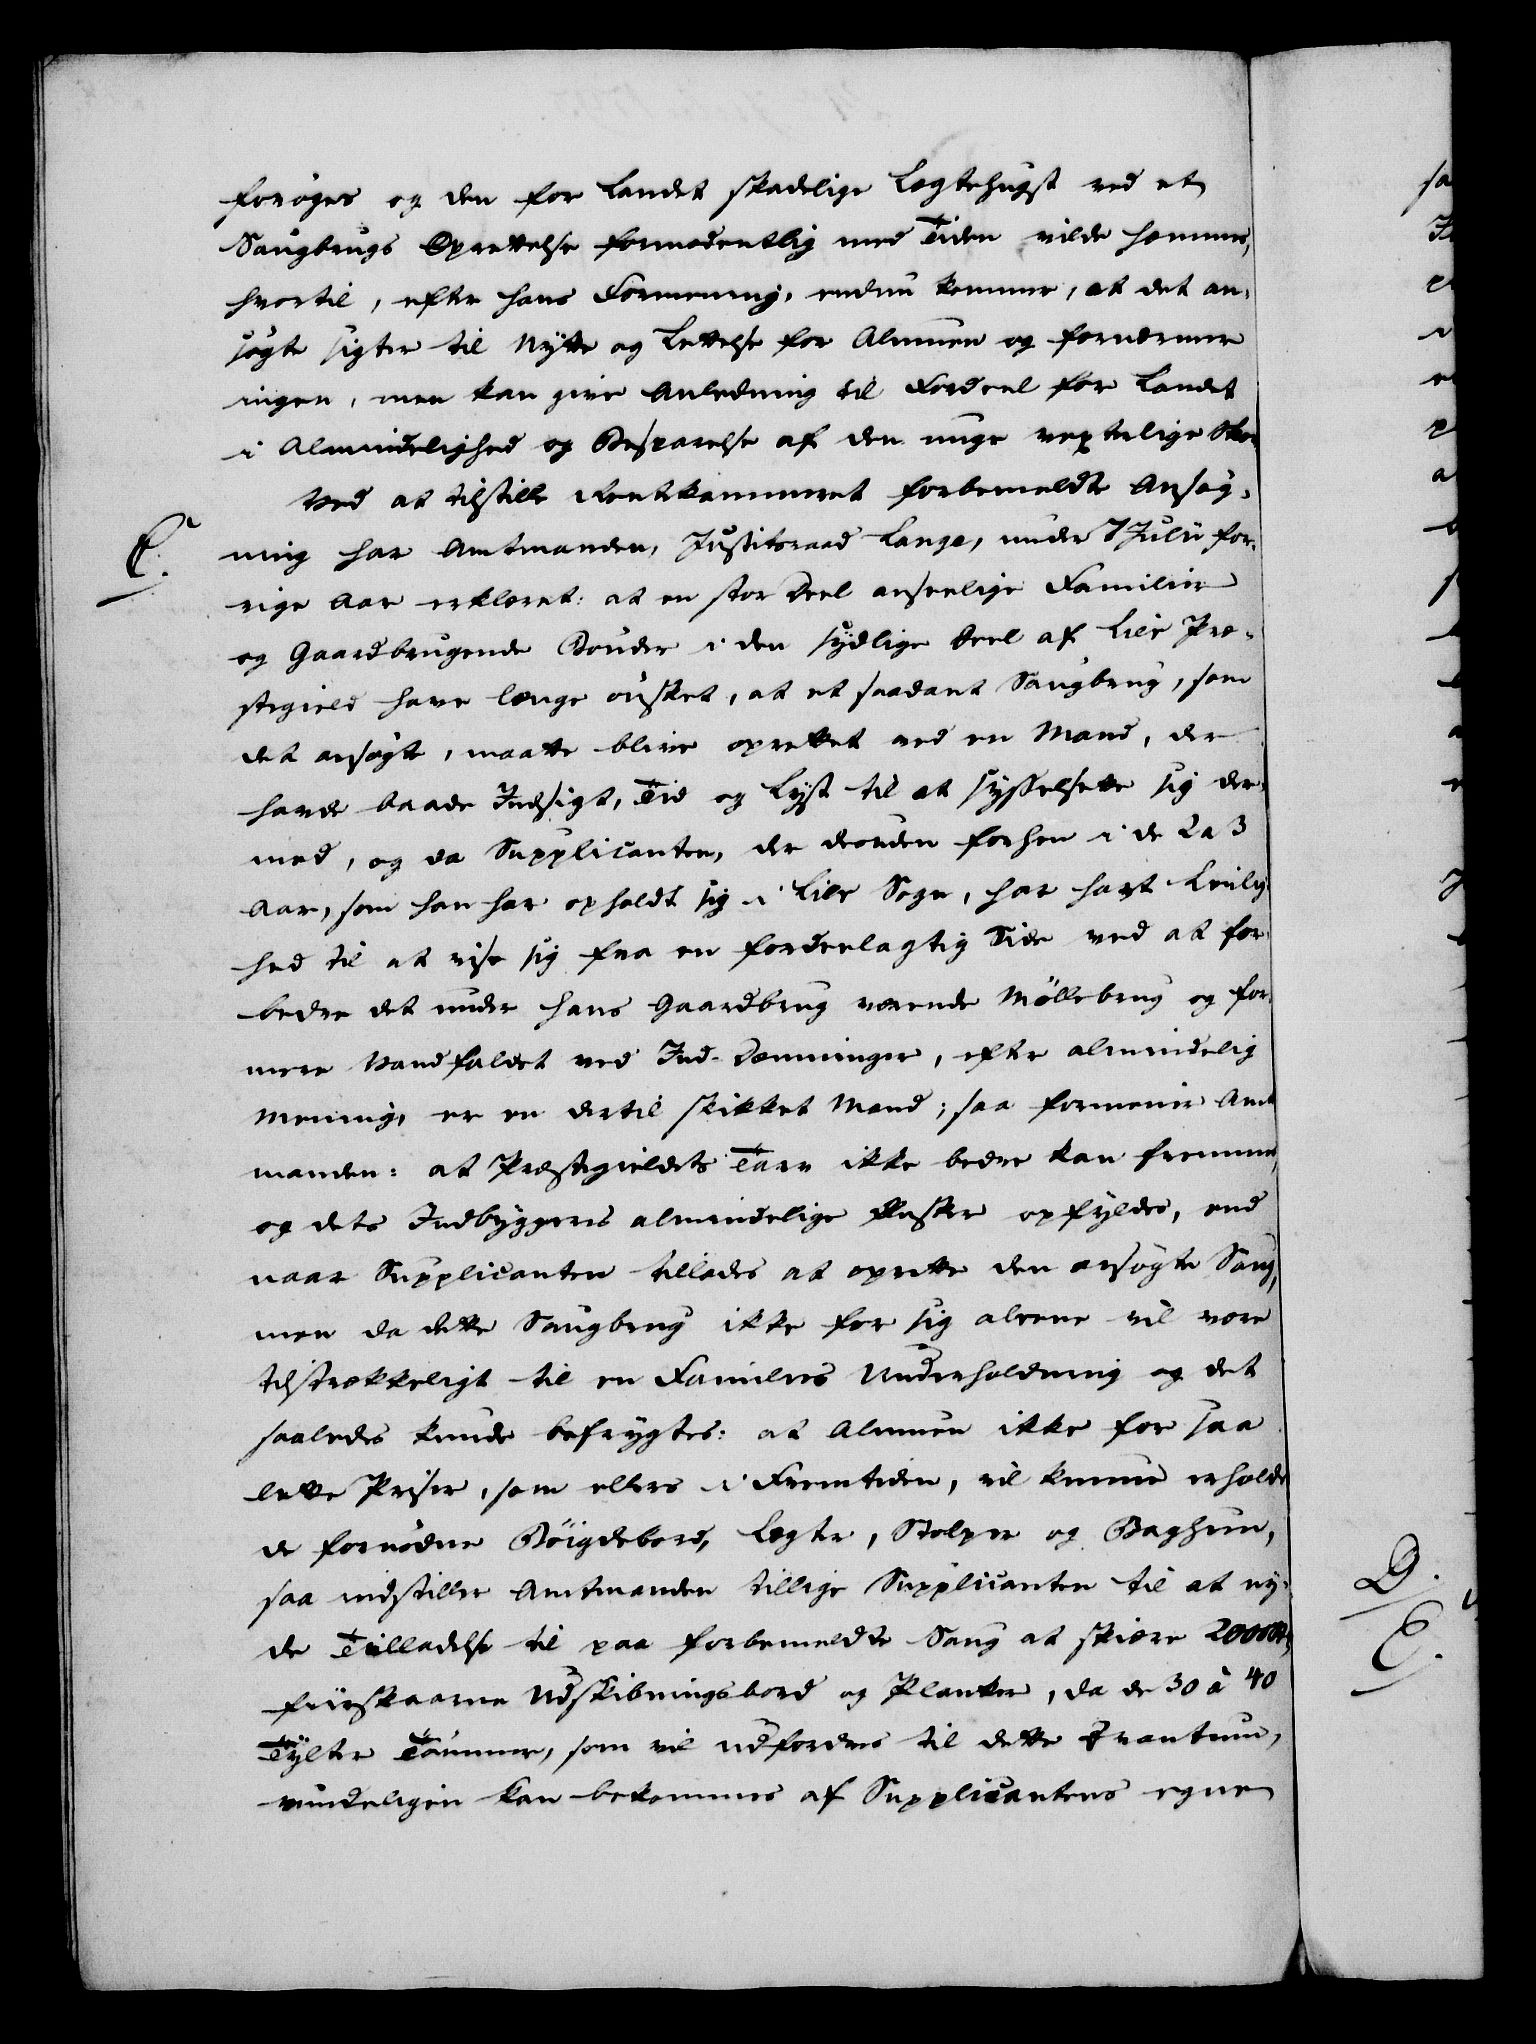 forøges og den for Landet skadelige Legtehugst ved et
Saugbrugs Oprettelse formodentlig med Tiden vilde hæmmes,
hvortil, efter hans Formening, endnu kommer, at det an-
søgte sigter til Nytte og Lettelse for Almuen og fornærmer
ingen, men kan give Anledning til Fordeel for Landet
i Almindelighed og Besparelse af den unge vexterlige Skov
Ved at tilstille Rentekammeret forbemeldte Ansøg-
C.
ning har Amtmanden, Justitsraad Lange, under 7 Julii for-
rige Aar erklæret: at en stor Deel anseelige Familier
og Gaardbrugende Bønder i den sydlige Deel af Lier Præ-
stegield have længe ønsket, at et saadant Saugbrug, som
det ansøgte, maatte blive oprettet ved en Mand, der
havde baade Indsigt, Tid og Lyst til at sysselsætte sig der-
med, og da Supplicanten, der desuden forhen i de 2 a 3
Aar, som han har opholdt sig i Lier Sogn, har havt Leilig-
hed til at vise sig fra en fordeelagtig Side ved at for-
bedre det under hans Gaardbrug værende Møllebrug og for-
mere Vandfaldet ved Ind-Dæmninger, efter almindelig
Mening, er en dertil skikket Mand; saa formener Amt
manden: at Præstegieldets Tarv ikke bedre kan fremmes,
og dets Indbyggeres almindelige Ønsker opfyldes, end
naar Supplicanten tillades at oprette den ansøgte Saug,
men da dette Saugbrug ikke for sig alleene vil være
tilstrækkeligt til en Families Underholdning og det
saaledes kunde befrygtes: at Almuen ikke for saa
lette Priser, som ellers i Fremtiden, vil kunne erholde
de fornødne Bøigdebord, Legter, Stolper og Baghun,
saa indstiller Amtmanden tillige Supplicanten til at ny-
D.
de Tilladelse til paa forbemeldte Saug at skiære 2000
E.
fiirskaarne Udskibningsbord og Planker, da de 30 à 40
Tylter Tømmer, som vil udfordres til dette Qvantum,
vindeligen kan bekommes af Supplicantens egne